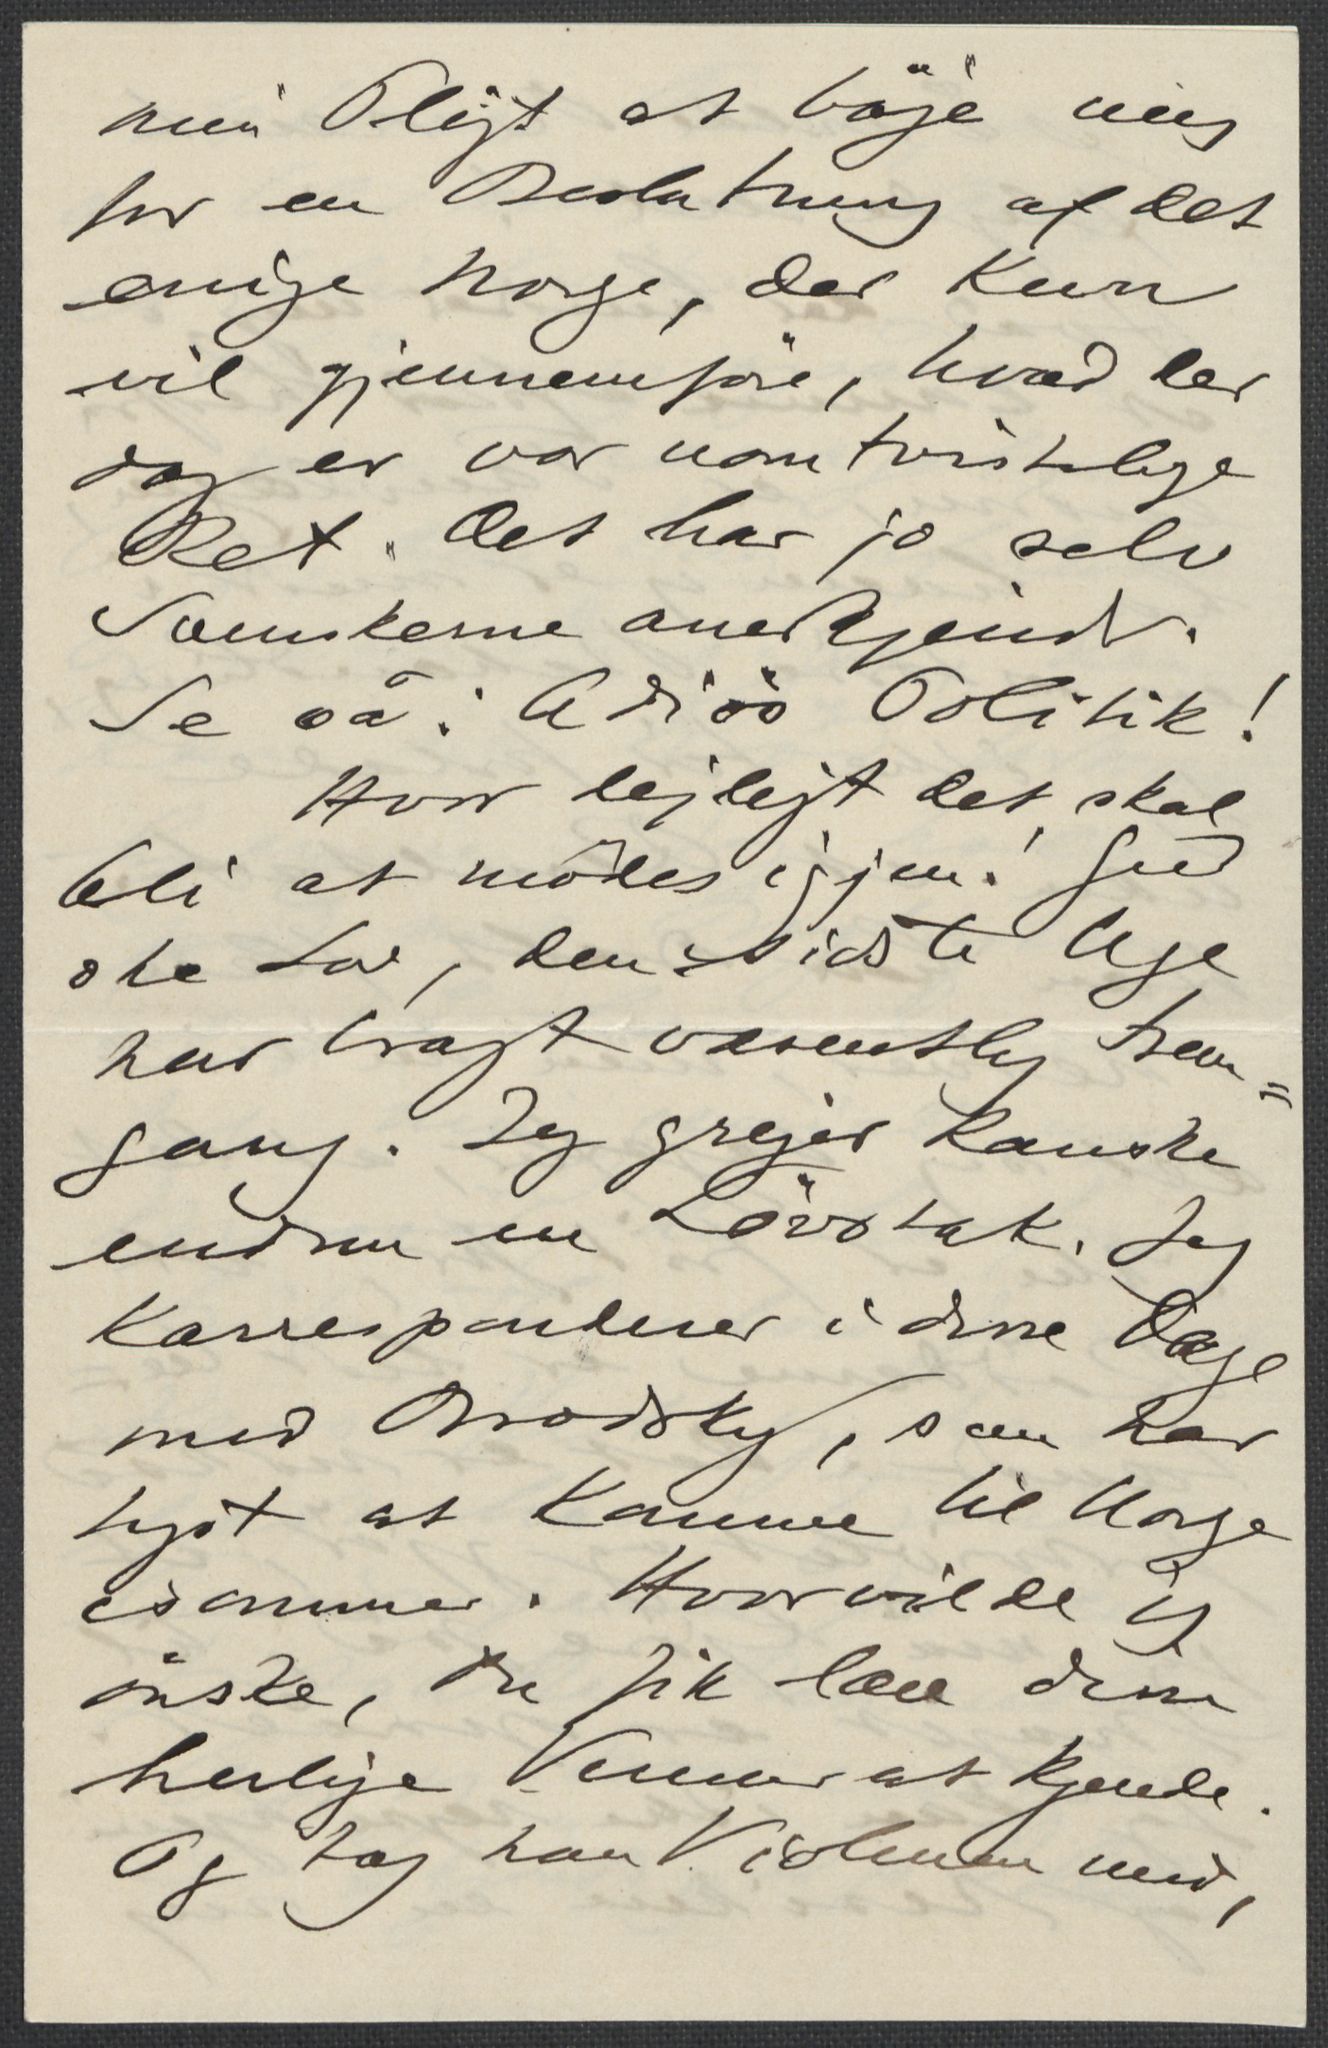 min Pligt at böje mig
for en Beslutning af det
enige Norge, der kun
vil gjennemföre, hvad der
dog er vor uomtvistelige
Ret. Det har jo selv
Svenskerne anerkjendt.
Se så: Adiöö Politik!
Hvor dejligt det skal
bli at mödes igjen! Gud
ske Lov, den sidste Uge
har bragt væsentlig Frem=
gang. Jeg grejer kanske
endnu en Lövstak. Jeg
korresponderer i disse Dage
med Brodsky, som har
lyst at komme til Norge
isommer. Hvor vilde jeg
önske, du fik lære disse
herlige Venner at kjende.
Og tog han Violinen med,